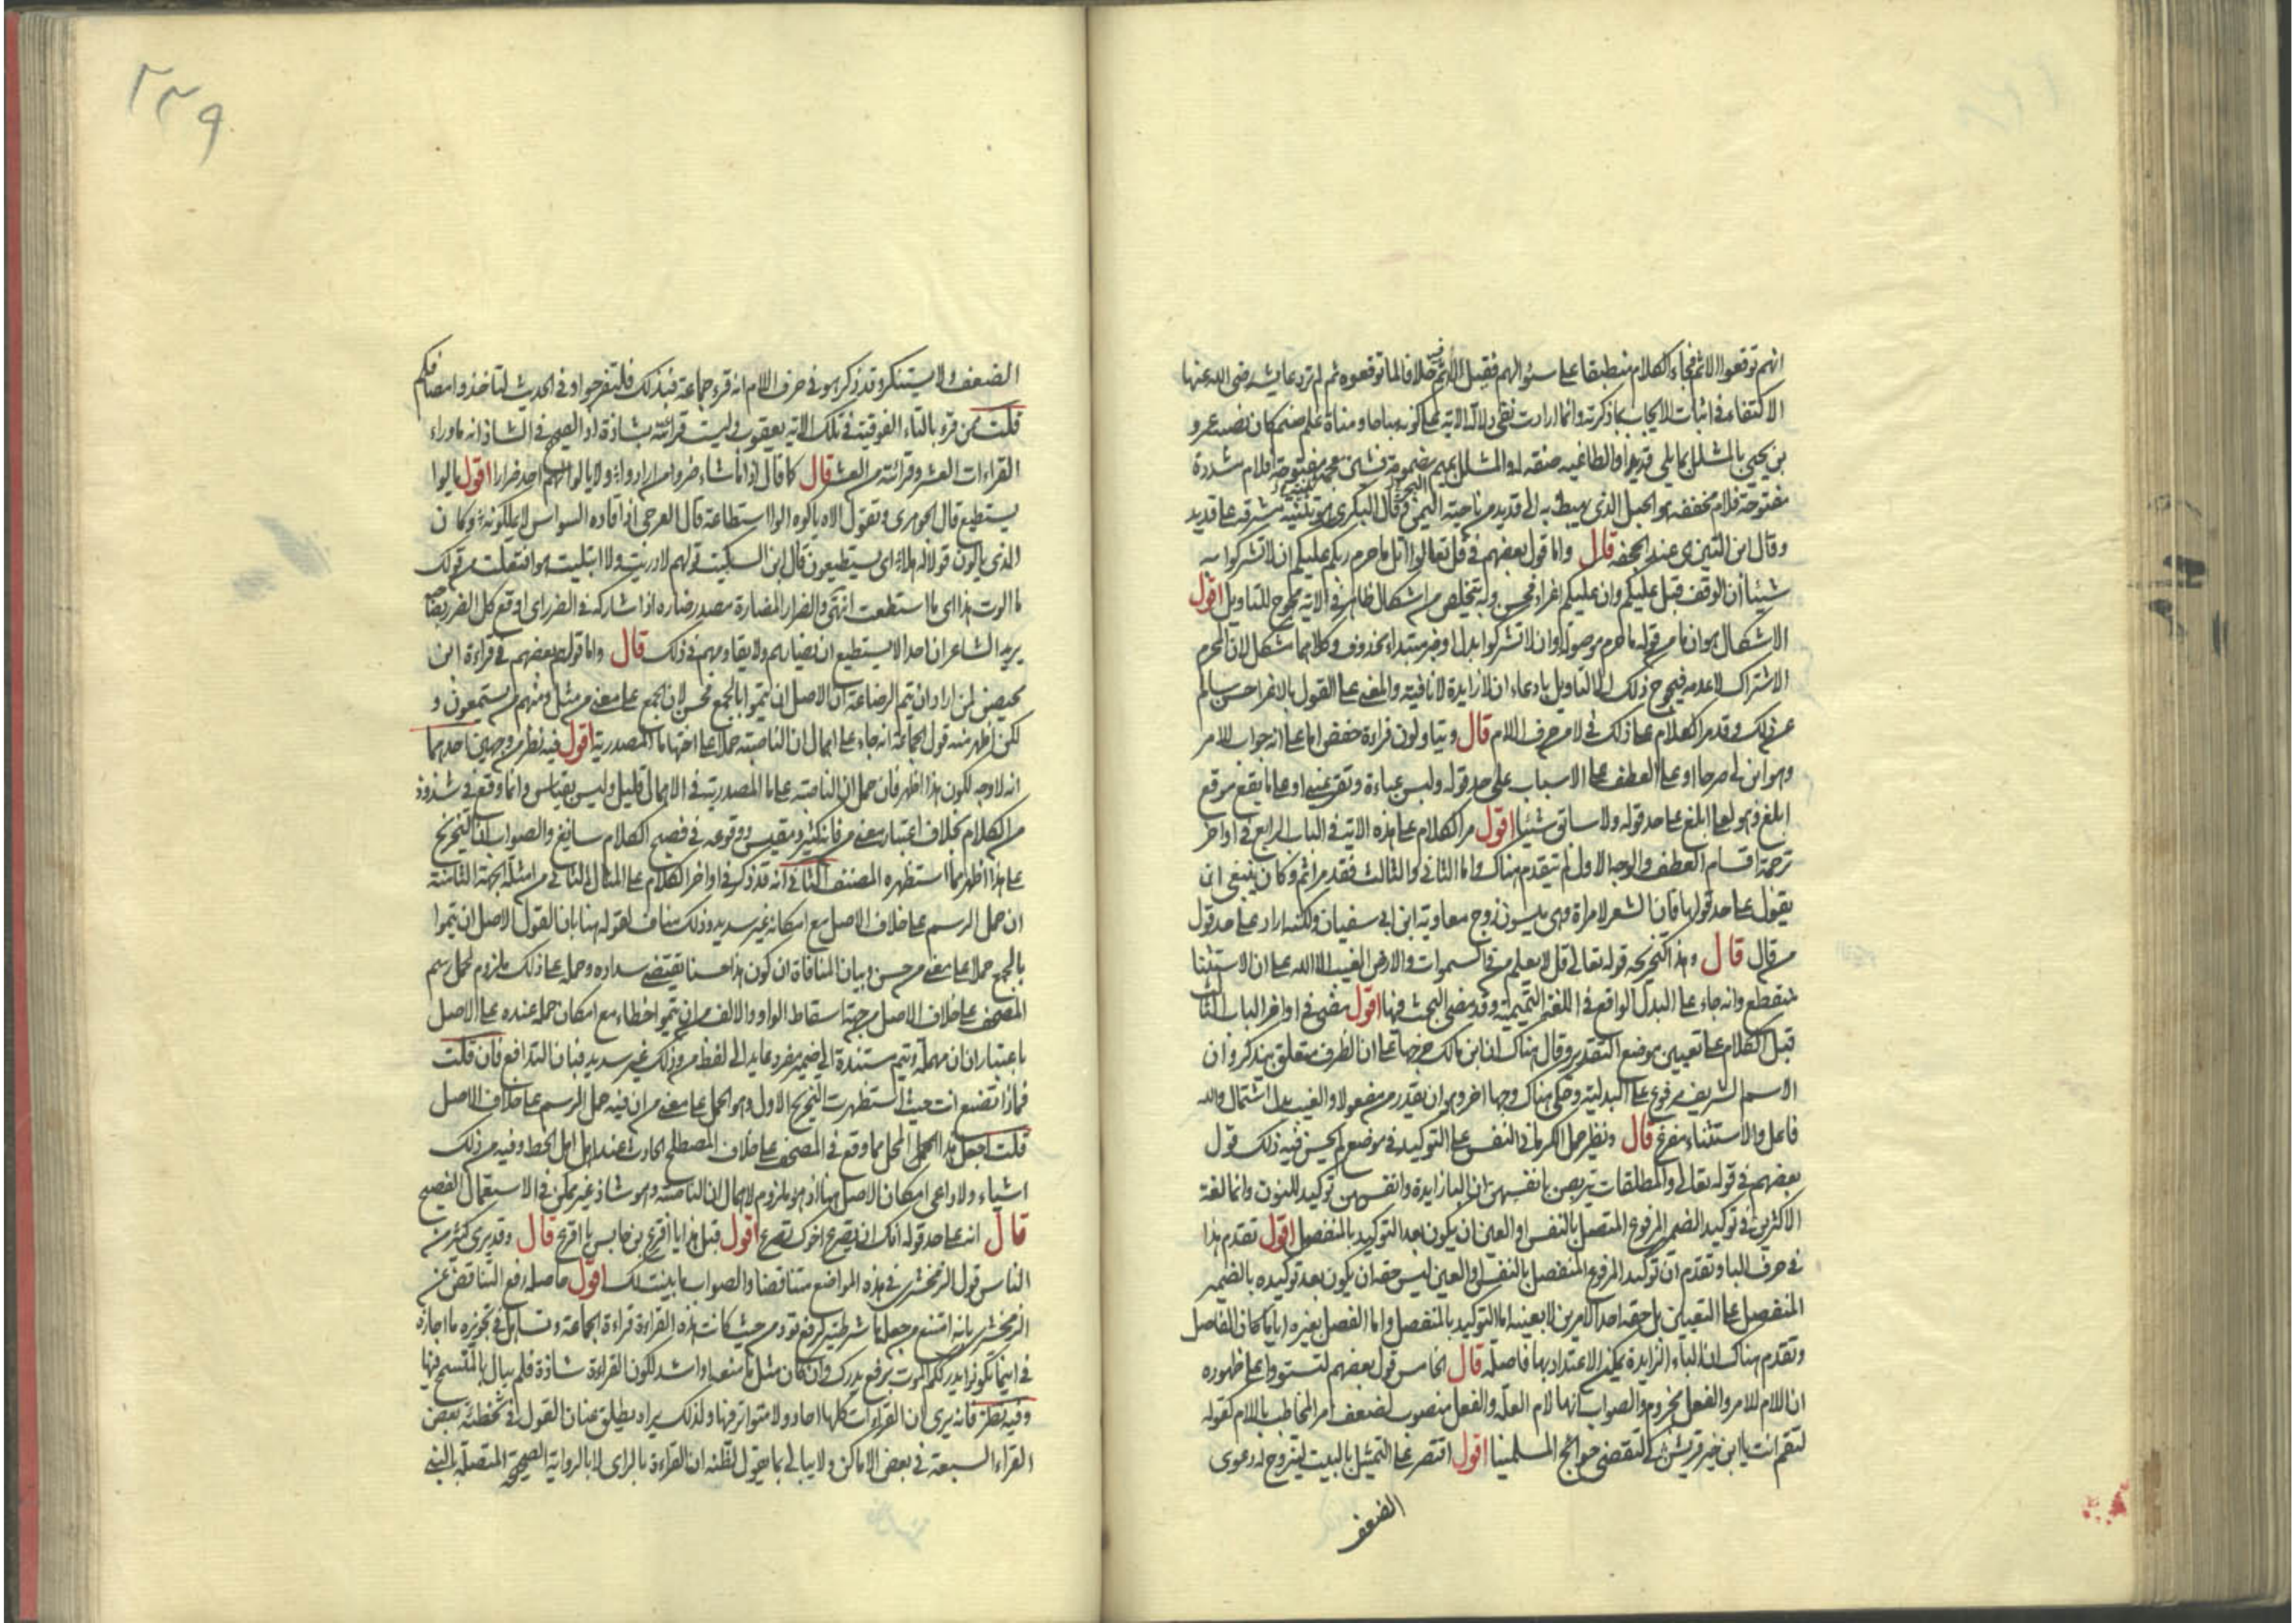 انهم توقعوا الاثم فجاء الكلام منطبقا على سؤالهم فقيل لا اثم خلافا لما توقعوه ثم لم ترد عايشة رضى الله عنها
الاكتفاء فى اثبات الايجاب بما ذكرته وانما ارادت نفى دلالة الاية على كونه مباحا ومناة علم صنم كان نصبه عمرو
بن يحيى بالمشلل مما يلى قديدا والطاغيه صفة لها والمشلل بميم مضمومة فشين معجمة مفتوحة فلام مشددة
مفتوحة فلام مخففه هو الجبل الذى يهبط به الى قديد من ناحية البحر قال البكرى هو ثنية مشرفه على قديد
وقال ابن التين هى عند الجحفه قال واما قول بعضهم فى قل تعالوا اتل ما حرم ربكم عليكم ان لا تشركوا به
شيئا أن الوقف قبل عليكم وان عليكم اغراء فحسن وبه يتخلص من اشكال ظاهر فى الاية محوج للتاويل اقول
الاشكال هو ان ما من قوله ما حرم موصولة وان لا تشركوا بدل او خبر مبتداء محذوف وكلاهما مشكل لان المحرم
الاشراك لا عدمه فيحوج ذلك الى التاويل بادعاء ان لا زايدة لا نافية والمعنى على القول بالاغراء حسن سالم
عن ذلك وقد مر الكلام على ذلك فى لا من حرف اللام قال ويتاولون قراءة حفص اما على انه جواب للامر
وهو ابن لى صرحا او على العطف على الاسباب على حد قوله ولبس عباءة وتقر عينى او على ما يقع موقع
ابلغ وهو لعلى ابلغ على حد قوله ولا سابق شيئا اقول مر الكلام على هذه الاية فى الباب الرابع فى اواخر
ترجمة اقسام العطف والوجه الاول لم يتقدم هناك واما الثانى والثالث فقد مرا ثم وكان ينبغى ان
يقول على حد قولها فان الشعر لامراة وهى ميسون زوج معاوية ابن ابى سفيان ولكنه اراد على حد قول
من قال قال وهذا كتخريجه قوله تعالى قل لا يعلم من فى السموات والارض الغيب الا الله على ان الاستثنا
منقطع وانه جاء على البدل الواقع فى اللغة التميمية وقد مضى البحث فيها اقول مضى فى اواخر الباب الثا
قبل الكلام على تعيين موضع التقدير وقال هناك ان ابن مالك خرجها على ان الظرف متعلق بيذكر وان
الاسم الشريف مرفوع على البدلية وحكى هناك وجها اخر وهو ان يقدر من مفعولا والغيب بدل اشتمال والله
فاعل والاستثناء مفرغ قال ونظير حمل الكرمانى النفس على التوكيد فى موضع لم يحسن فيه ذلك قول
بعضهم فى قوله تعالى والمطلقات يتربصن بانفسهن ان الباء زايدة وانفسهن توكيد للنون وانما لغة
الاكثرين فى توكيد الضمير المرفوع المتصل بالنفس او العين ان يكون بعد التوكيد بالمنفصل اقول تقدم هذا
فى حرف البا وتقدم ان توكيد المرفوع المنفصل بالنفس او العين ليس حقه ان يكون بعد توكيده بالضمير
المنفصل على التعيين بل حقه احد الامرين لا بعينه اما التوكيد بالمنفصل واما الفصل بغيره ايا ما كان الفاصل
وتقدم هناك ان الباء الزايدة يمكن الاعتداد بها فاصلة قال الخامس قول بعضهم لتستووا على ظهوره
ان اللام للامر والفعل مجزوم والصواب انها لام العلة والفعل منصوب لضعف امر المخاطب باللام كقوله
لتقم انت يا ابن خير قريش كى لتقضى حوائج المسلمينا اقول اقتصر على التمثيل بالبيت ليتروج له دعوى
الضعف
٢٣٩
الضعف ولا يستنكر وقد ذكر هو فى حرف اللام انه قرء جماعة فبذلك فلتفرحوا وفى الحديث لتاخذوا مصافكم
قلت ممن قرء بالتاء الفوقية فى تلك الاية يعقوب وليست قرائته بشاذة اذ الصحيح فى الشاذ انه ما وراء
القراءات العشر وقرائته من العشر قال كما قال اذا ما شاء ضروا من ارادوا ولا يالوا لهم احد ضرارا اقول يالوا
يستطيع قال الجوهرى وتقول الاه يالوه الوا استطاعة قال العرجى اذا قاده السواس لا يملكونه وكان
الذى يالون قولا له هلا اى يستطيعون قال ابن السكيت قولهم لا دريت ولا ائتليت هو افتعلت من قولك
ما الوت هذا اى ما استطعت انتهى والضرار المضارة مصدر ضاره اذا شاركه فى الضرر اى اوقع كل الضرر بصاحبه
يريد الشاعر ان احدا لا يستطيع ان يضيارهم ولا يقاومهم فى ذلك قال واما قول بعضهم فى قراءة ابن
محيصن لمن اراد ان يتم الرضاعة ان الاصل ان يتموا بالجمع فحسن لان الجمع على معنى من مثل ومنهم من يستمعون و
لكن اظهر منه قول الجماعة انه جاء على اهمال ان الناصبة حملا على اختها ما المصدرية اقول فيه نظر من وجهين احدهما
انه لا وجه لكون هذا اظهر فان حمل ان الناصبة على ما المصدرية فى الاهمال قليل وليس بقياس وانما وقع فى شذوذ
من الكلام بخلاف اعتبار معنى من فانه كثير ومقيس ووقوعه فى فصيح الكلام سايغ والصواب ان التخريج
على هذا اظهر مما استظهره المصنف الثانى انه قد ذكر فى اواخر الكلام على المثال الثانى من امثلة الجهة الثامنة
ان حمل الرسم على خلاف الاصل مع امكانه غير سديد وذلك مناف لقوله هنا بان القول الاصل ان يتموا
بالجمع حملا على معنى من حسن وبيان المنافاة ان كون هذا حسنا يقتضى سداده وحمله على ذلك ملزوم لحمل رسم
المصحف على خلاف الاصل من جهة اسقاط الواو والالف من ان يتموا خطاء مع امكان حمله عنده على الاصل
باعتبار ان ان مهملة ويتم مستندة الى ضمير مفرد عايد الى لفظ من وذلك غير سديد فبان التدافع فان قلت
فماذا تصنع انت حيث استظهرت التخريج الاول وهو الحمل على معنى من ان فيه حمل الرسم على خلاف الاصل
قلت اجعل هذا المحمل مما وقع فى المصحف على خلاف المصطلح الحادث عند اهل الخط وفيه من ذلك
اشياء ولا ادعى امكان الاصل هنا اذ هو ملزوم لاهمال ان الناصبة وهو شاذ غير ممكن فى الاستعمال الفصيح
قال انه على حد قوله انك ان يصرع اخوك تصرع اقول قبل هذا يا اقرع بن حابس يا اقرع قال وقد يرى كثير من
الناس قول الزمخشرى فى هذه المواضع متناقضا والصواب ما بينت لك اقول حاصله رفع التناقض عن
الزمخشرى بانه امتنع من جعل ما شرطية لرفع تود من حيث كانت هذه القراءة قراءة الجماعة وتساهل فى تجويزه ما اجازه
فى اينما تكونوا يدرككم الموت برفع يدرك وان كان مثل ما منعه او اشد لكون القراءة شاذة فلم يبال بالتسمح فيها
وفيه نظر فانه يرى ان القراءات كلها احاد ولا متواتر فيها ولذلك يراه يطلق عنان القول فى تخطئة بعض
القراء السبعة فى بعض الاماكن ولا يبالى بما يقول لظنه ان القراءة بالراى لا بالرواية الصحيحة المتصلة بالنبى